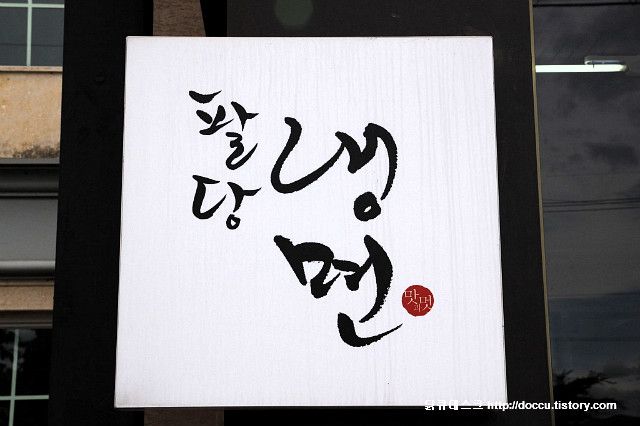 팔당
냉면
맛과멋
닭큐데스크 http://doccu.tistory.com